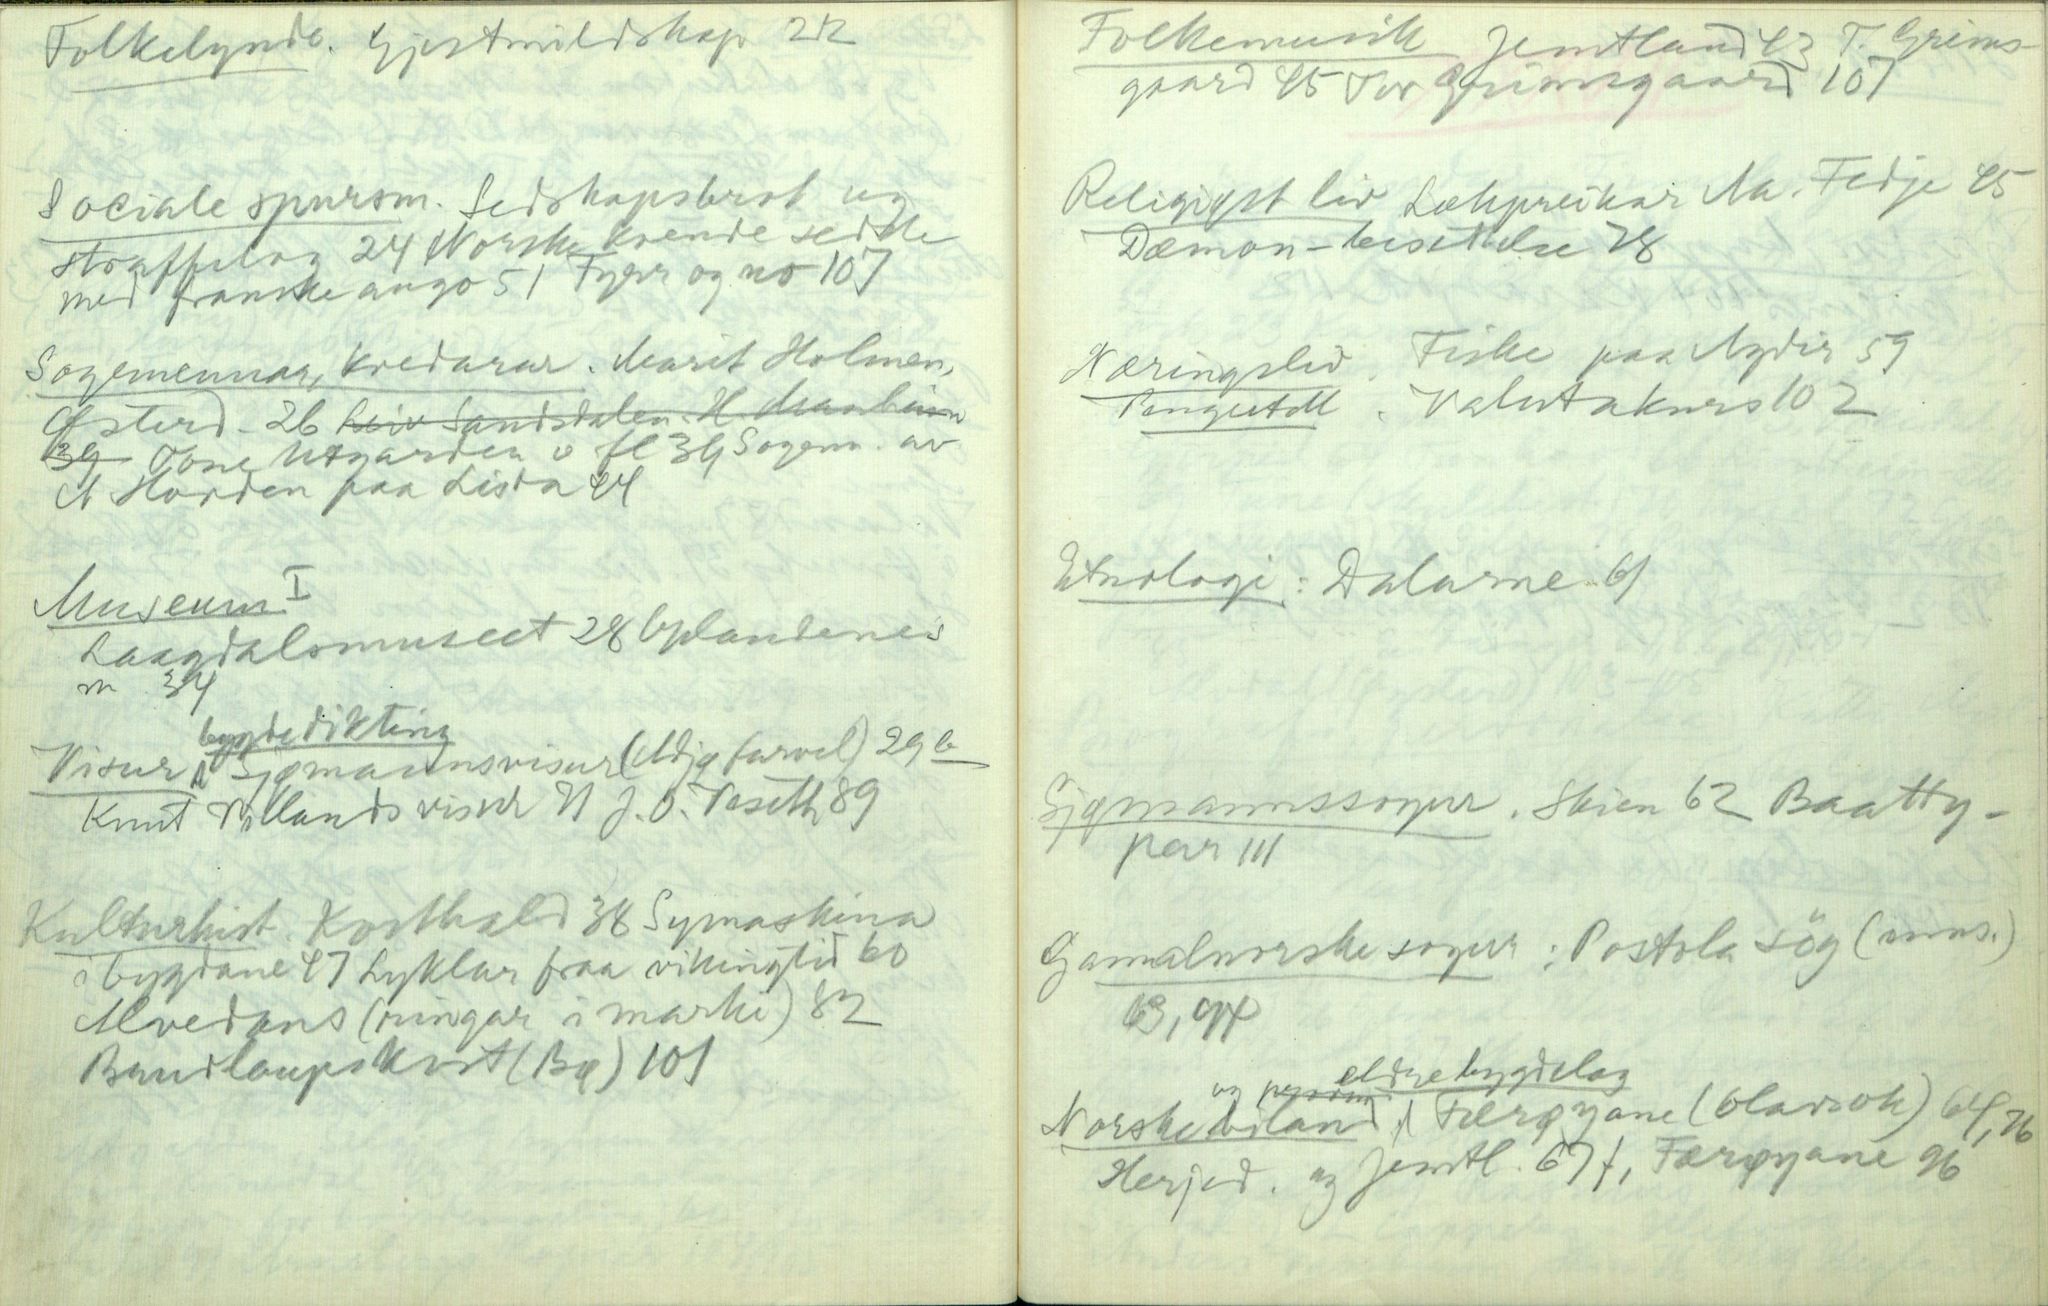 Folkelynde. Gjestmildskap 22
Sociale spursm. Sedskapsbrot og
straffelag 24 Norske kvende sedde
med franske augo 51 Fyrr og no 107
Sogemennar, kvedarar. Marit Holmen,
Østerd. 26 Leiv Sandsdalen H
39 Tone Utgarden o fl 39 Sogem. av
A Horden paa Lista 44
Museum I
Laagdalsmuseet 28 Oplandenes
m 34
bygdedikting
Visur Sjømannsvisur (Adjø farvel) 29 b
Knut Villands visur 71 J. O. Veseth 89
Kulturhist. Kosthald 38 Symaskina
i bygdane 47 Lyklar fraa vikingtid 60
Alvedans (ringar i marki) 82
Brudlaupskost (Bø) 101
Folkemusik Jemtland 43 T. Grims-
gaard 45 Tor Grimsgaard 107
Religiøst liv Lækpreikar Na. Fedje 45
Dæmon-besettelse 78
Næringsliv. Fiske paa Agdir 59
Pengestell. Valutakurs 102
Etnologi: Dalarne 61
Sjømannssogur. Skien 62 Baatty-
par 111
Gamalnorske sogur: Postola sög (mns.)
63, 94
og eldre bygdelag
Norske biland Færøyane (Olavsok) 64, 76
Herjed. og Jemtl. 67 f, Færøyane 96